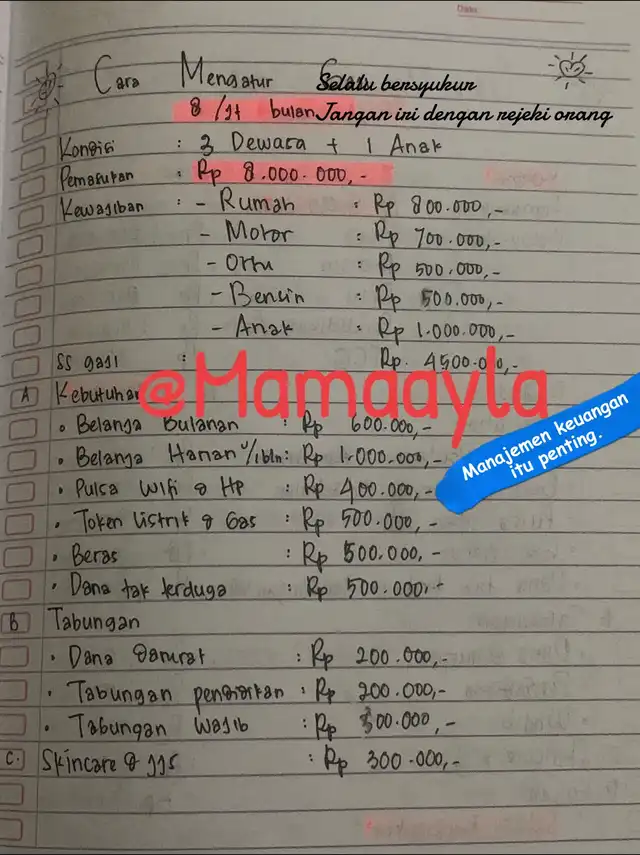 Cara Mengatur
Selalu bersyukur
8 /jt bulan Jangan iri dengan rejeki orang
Kondisi : 3 Dewasa + 1 Anak
Pemasukan : Rp 8.000.000,-
Kewajiban : - Rumah : Rp 800.000,-
- Motor : Rp 700.000,-
- Ortu : Rp 500.000,-
- Bensin : Rp 500.000,-
- Anak : Rp 1.000.000,-
SS gaji : Rp. 4500.000,-
@Mamaayla
A Kebutuhan
• Belanja Bulanan : Rp 600.000,-
• Belanja Harian u/1bln: Rp 1.000.000,-
• Pulsa Wifi & Hp : Rp 400.000,-
Manajemen keuangan
itu penting.
• Token listrik & Gas : Rp 500.000,-
• Beras : Rp 500.000,-
• Dana tak terduga : Rp 500.000,-
B Tabungan
• Dana Darurat : Rp 200.000,-
• Tabungan pendidikan : Rp 200.000,-
• Tabungan wajib : Rp 300.000,-
C. Skincare & JJS : Rp 300.000,-